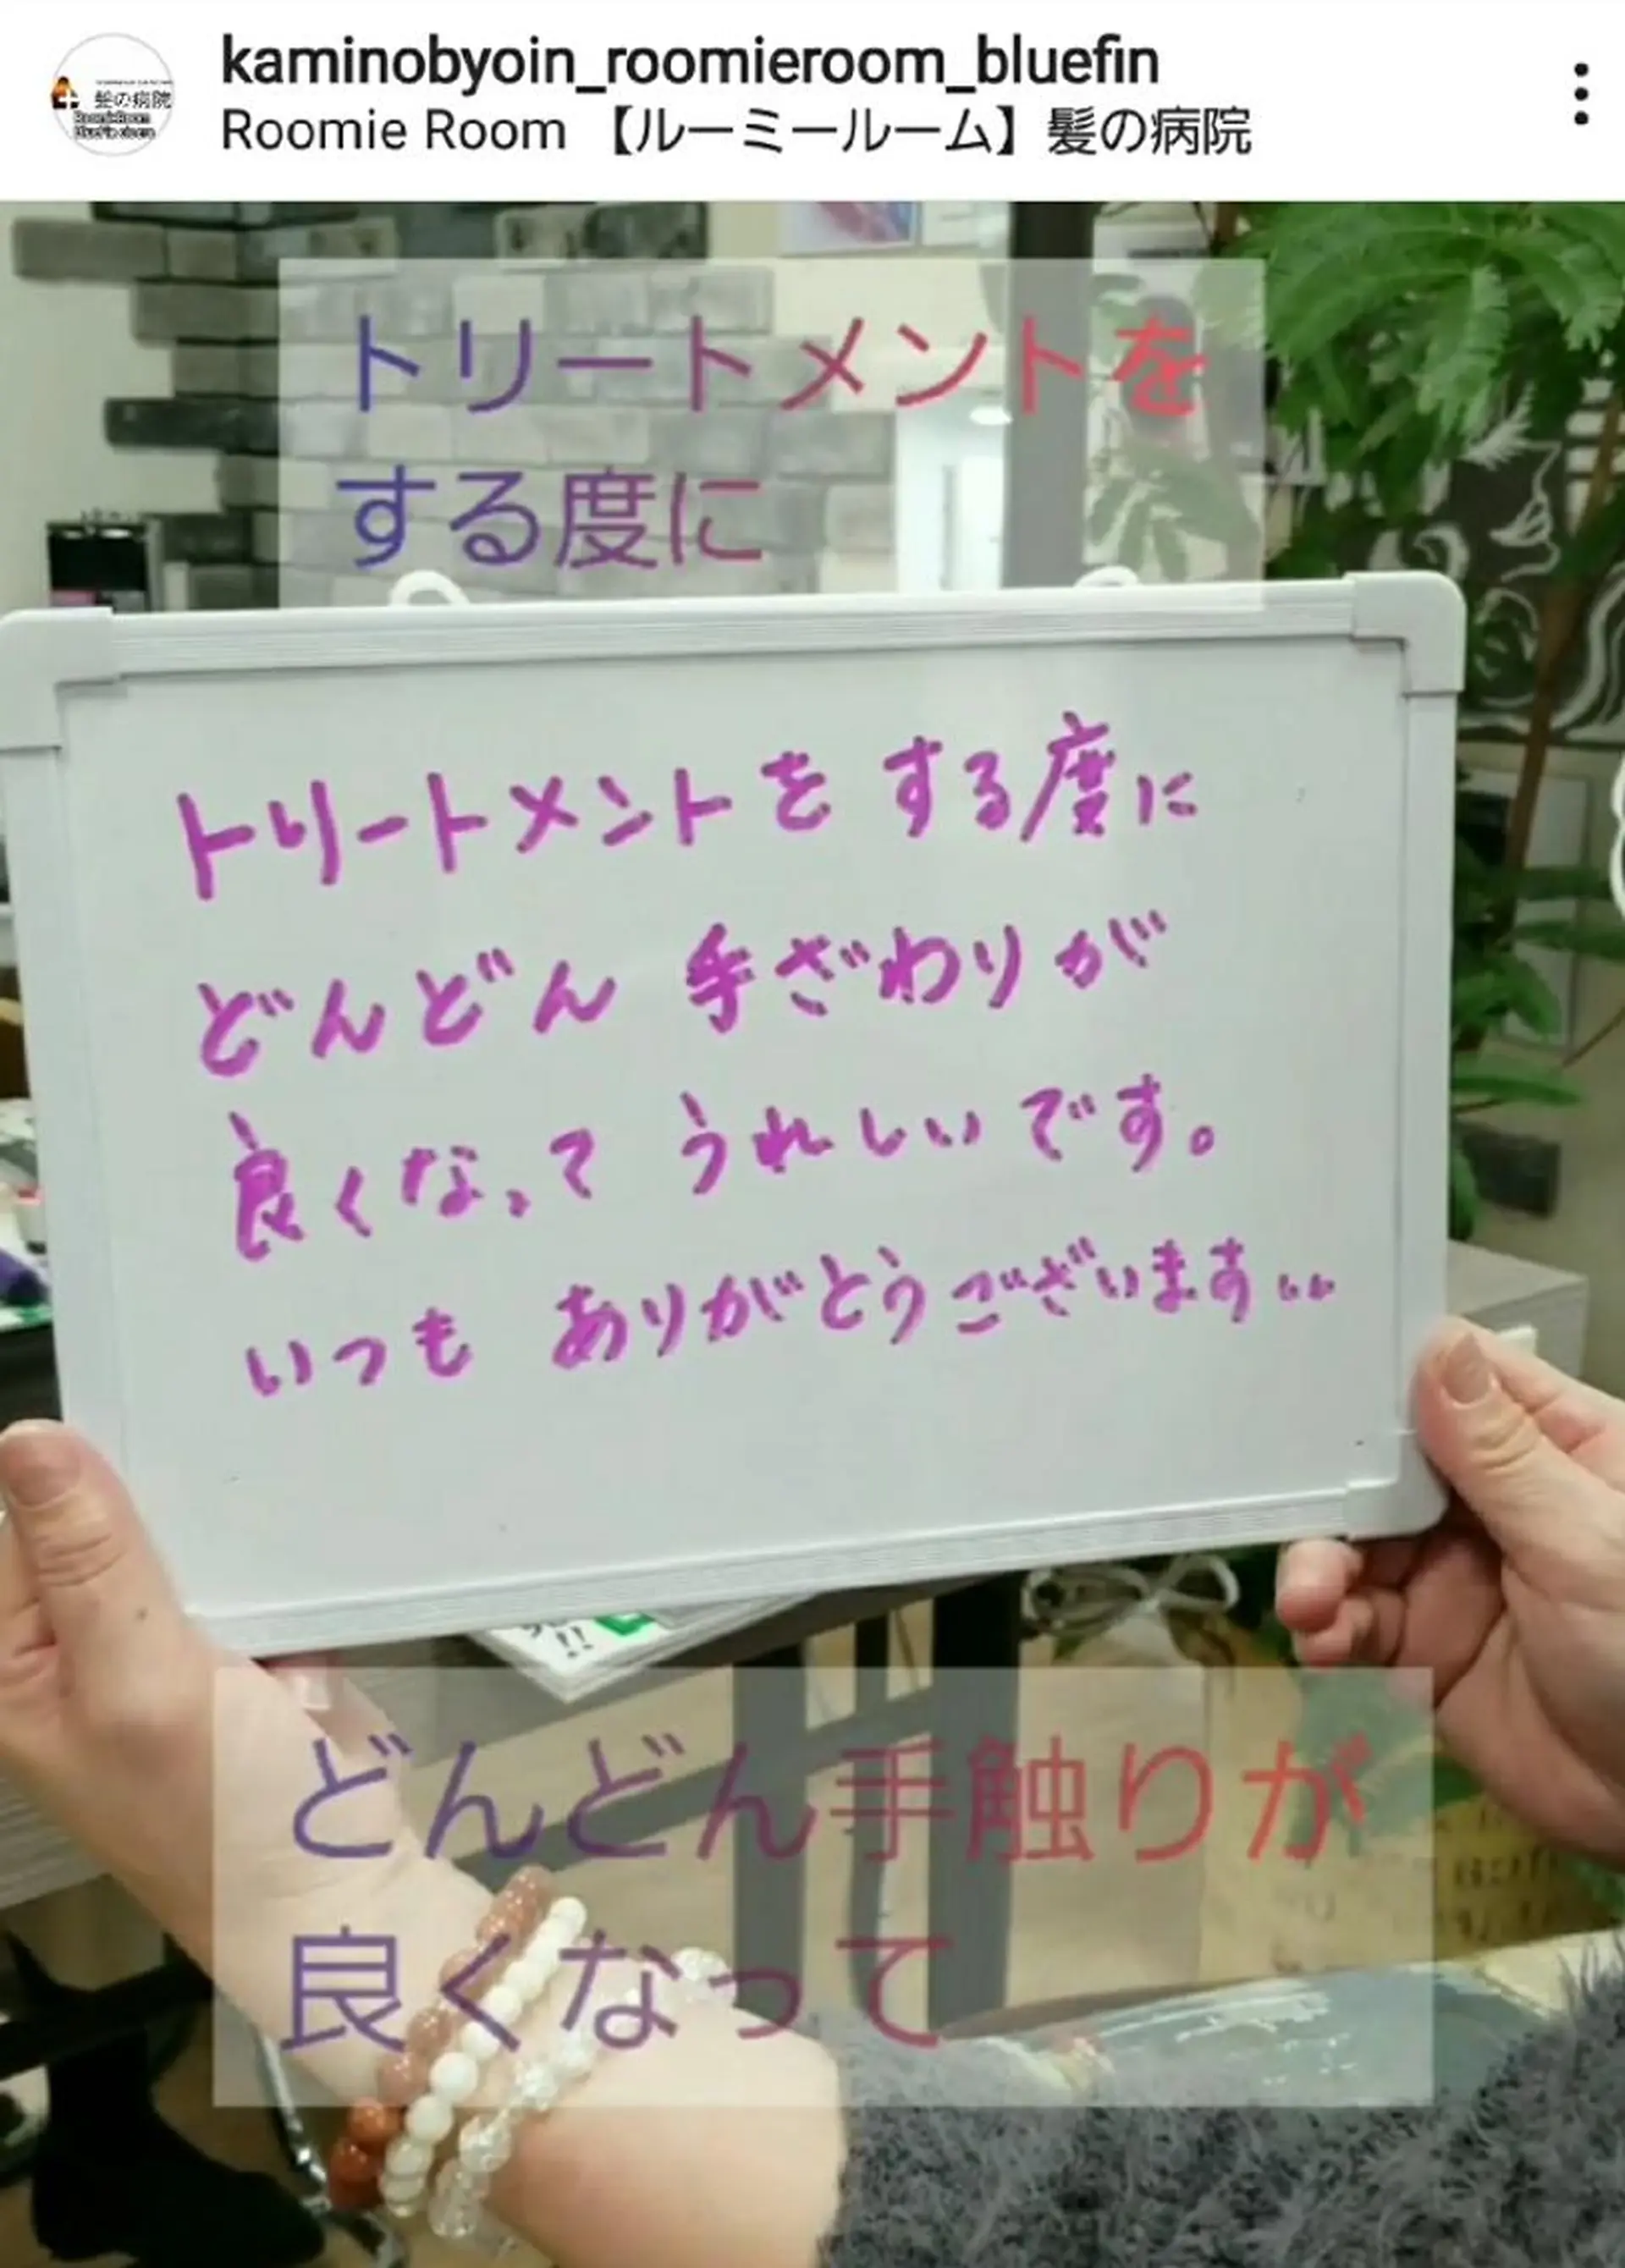 kaminobyoin_roomieroom_bluefin
Roomie Room 【ルーミールーム】髪の病院
髪の病院
トリートメントを
する度に
トリートメントをする度に
どんどん 手ざわりが
良くなって うれしいです。
いつも ありがとうございます
どんどん手触りが
良くなって